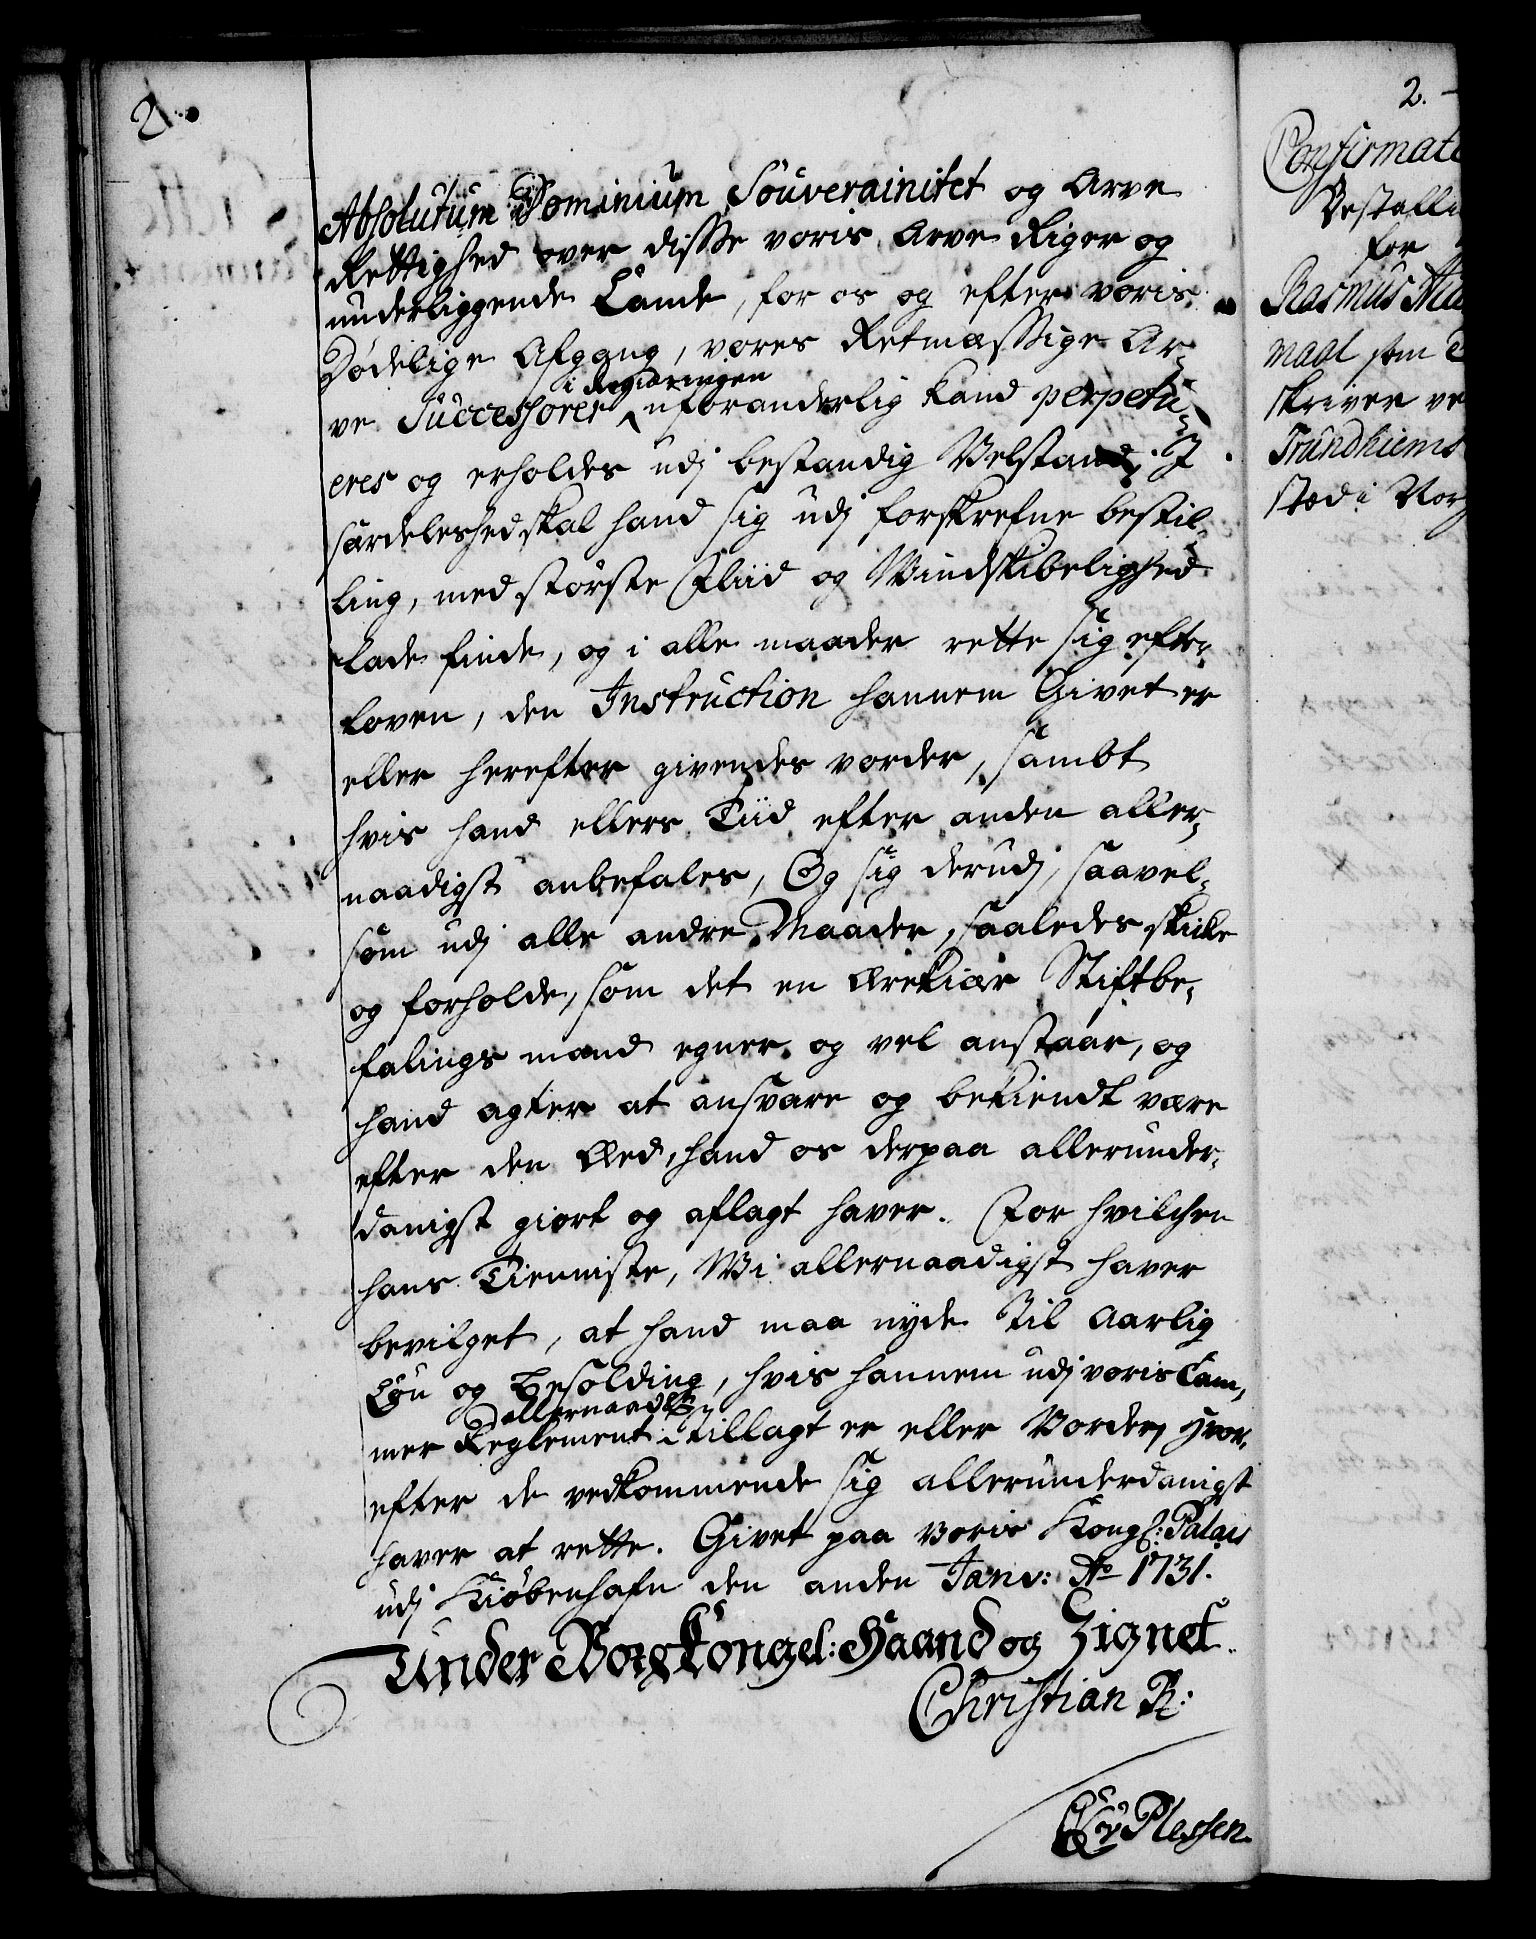 2.
Absolutum Dominium Souverainitet og Arve
Rettighed over disse voris Arve Riger og
underliggende Lande, for os og efter voris
Dødelige Afgang, vores Retmæssige Ar-
ve Successorer i Regieringen uforanderlig kand perpetu-
eres og erholdes udj bestandig Velstand; J
særdeleshed skal hand sig udj forskrefne bestil-
ling, med største Fliid og Windskibelighed
lade finde, og i alle maader rette sig efter
loven, den Instruction hannem Givet er
eller herefter givendes vorder, sambt
hvis hand ellers Tiid efter anden aller-
naadigst anbefales, Og sig derudj, saavel-
som udj alle andre Maader, saaledes skicke
og forholde, som det en ærekiær Stiftbe-
falings mand egner og vel anstaar, og
hand agter at ansvare og bekiendt være
efter den Æed, hand os derpaa allerunder-
danigst giort og aflagt haver. For hvilchen
hans Tienniste, Wi allernaadigst haver
bevilget, at hand maa nyde til aarlig
Løn og Besolding, hvis hannem udj voris Cam-
mer Reglement allernaadigst tillagt er eller Vorder, Hvor-
efter de vedkommende sig allerunderdanigst
haver at rette. Givet paa voris Kongl: Palais
udj Kiøbenhafn den anden Janv: Ao 1731.
Under Vor Kongel: Haand og Zignet.
Christian R:
Plessen
2.
Confirmati
Bestalli
for
Rasmus
maal som
skriver ve
Trundhiems
sted i Nor